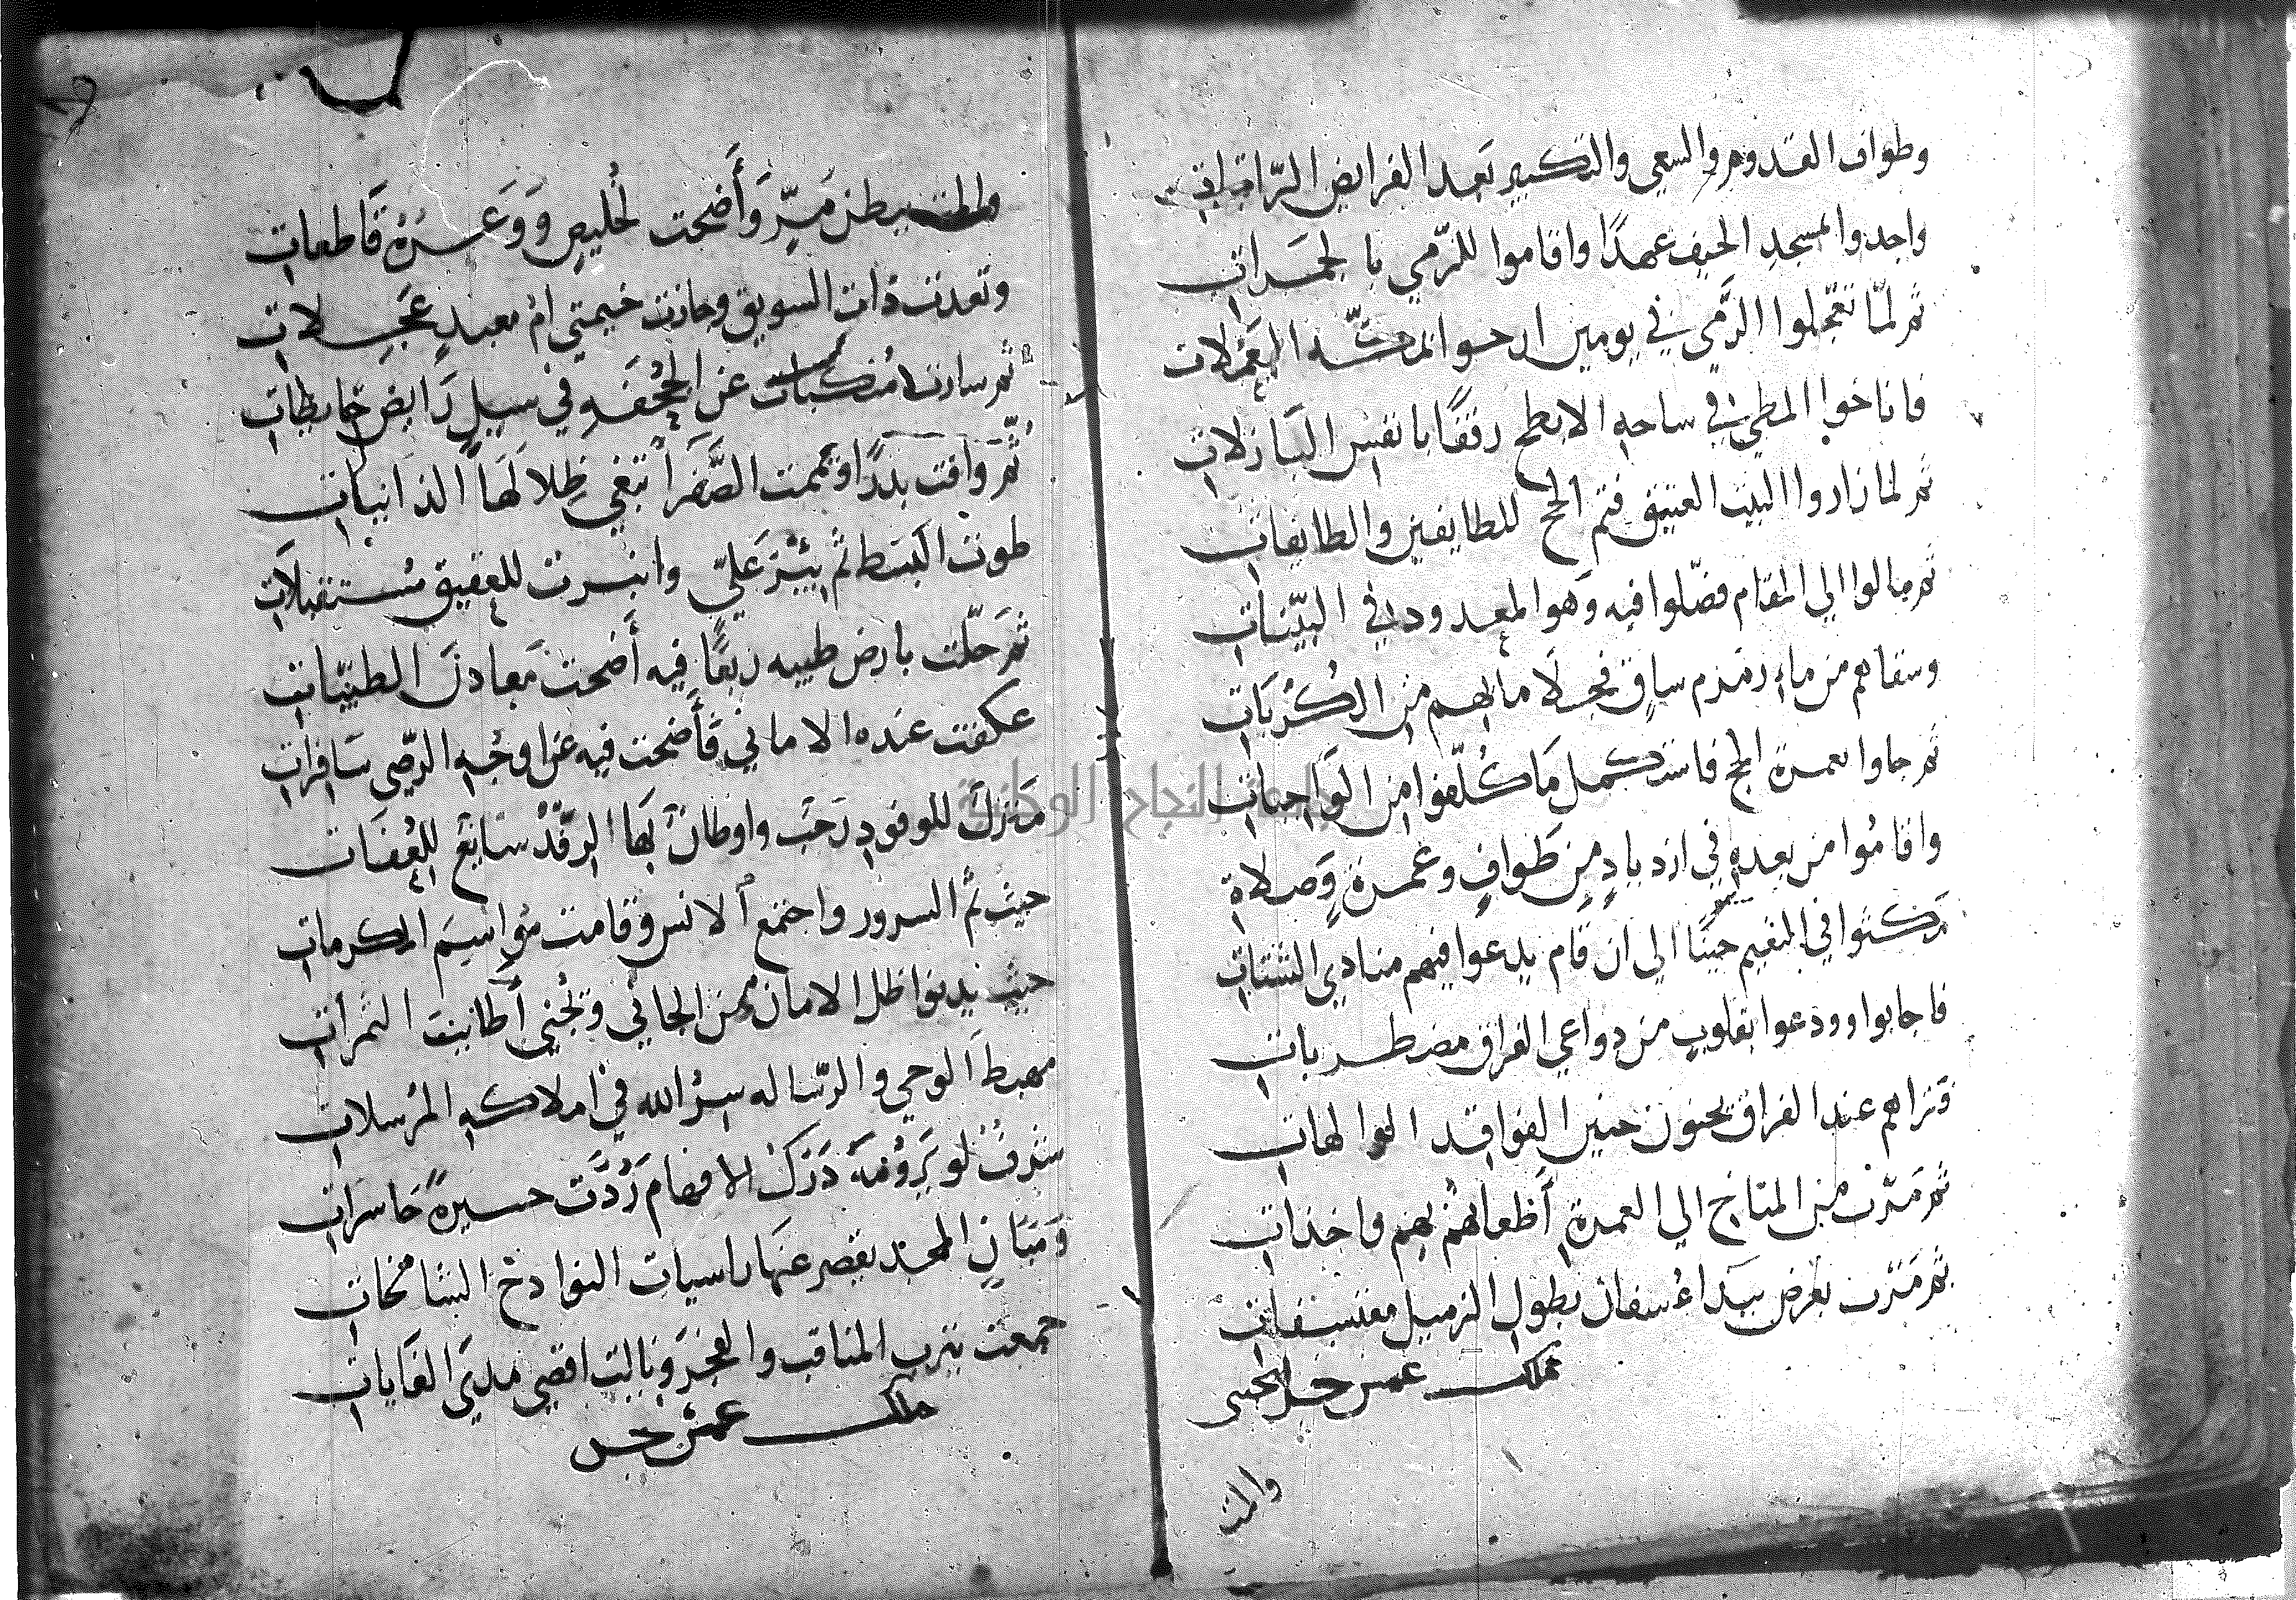 وطواف القدوم والسعي والتكبير بعد الفرايض الراتبات
واجدوا لمسجد الخيف عهدًا واقاموا للرّمي بالجمرات
ثم لمّا تعجلوا الرّمي في يومين ارحوا لمكّه اليعملات
فاناخوا المطي في ساحه الابطح رفقًا بانفس البازلات
ثم لما زاروا البيت العتيق فتم الحج للطايفين والطايفات
ثم مالوا الي المقام فصّلوا فيه وهو المعدود في البيّنات
وسقاهم من ماء زمزم ساقٍ فجلا ما بهم من الكُرُبَات
ثم جاوا بعمرة الحج فاستكمل مَا كُلّفوا من الواجبات
واقامُوا من بعده في ازديادٍ من طَوافٍ وعمرةٍ وَصلاة
مكثوا في النعيم حينًا الي ان قام يدعوا فيهم منادي الشتات
فاجابوا وودعوا بقلوبٍ من دواعي الفراق مضطربات
فتراهم عند الفراق يحنون حنين الفواقد الوالهات
ثم مَرّت من المناخ الي العمرة أظعانهُم بهم واخذات
ثم مَرّت بعرض بيداءُ سفان بطول الزميل معتسفات
ملك عمر
والمت
والمت ببطن مَرٍّ وَأَضحت لخُليصٍ وَوَعَرةً قَاطعات
وتعدت ذات السويق وجازت خيمتي امُ معبدٍ عَجِلات
ثم سارت منكبات عن الجُحْفه في سيل رَابض خابطات
ثُمّ وَافت بدرًا وَيممت الصَّفرَا تبتغي ظِلالَهَا الدانيات
طوت البسَط ثم بئْرَ عَليّ وانبرت للعقيق مُستقبلات
ثم حَلّت بارض طيبه ربعًا فيه أضحت مَعادن الطيّبات
عكفت عنده الاماني فَأَضحت فيه عن اوجُه الرضي سَافرات
مَنزل للوفود رَحب واوطان بهَا الرفّدُ سَابغ للعُفَات
حيث تمّ السرور واجتمع الانس وقامت مَواسِيمَ المكرمات
حيث يدنوا ظل الامان من الجاني وتُجني أطانيب الثمرات
مهبطَ الوحي والرّساله سِرُ الله في املاكه المُرسلات
شرفٌ لو يَرُوُمَهُ دَرَكَ الافهام رُدَّت حسيرةً حَاسرات
وَمَبَانٍ المجد يقصر عنهَا راسيات البواذخ الشامخات
جمعت يثرب المناقب والفخرَ ونالت اقصي مدي الغَايات
ملك عمر
جامعة النجاح الوطنية